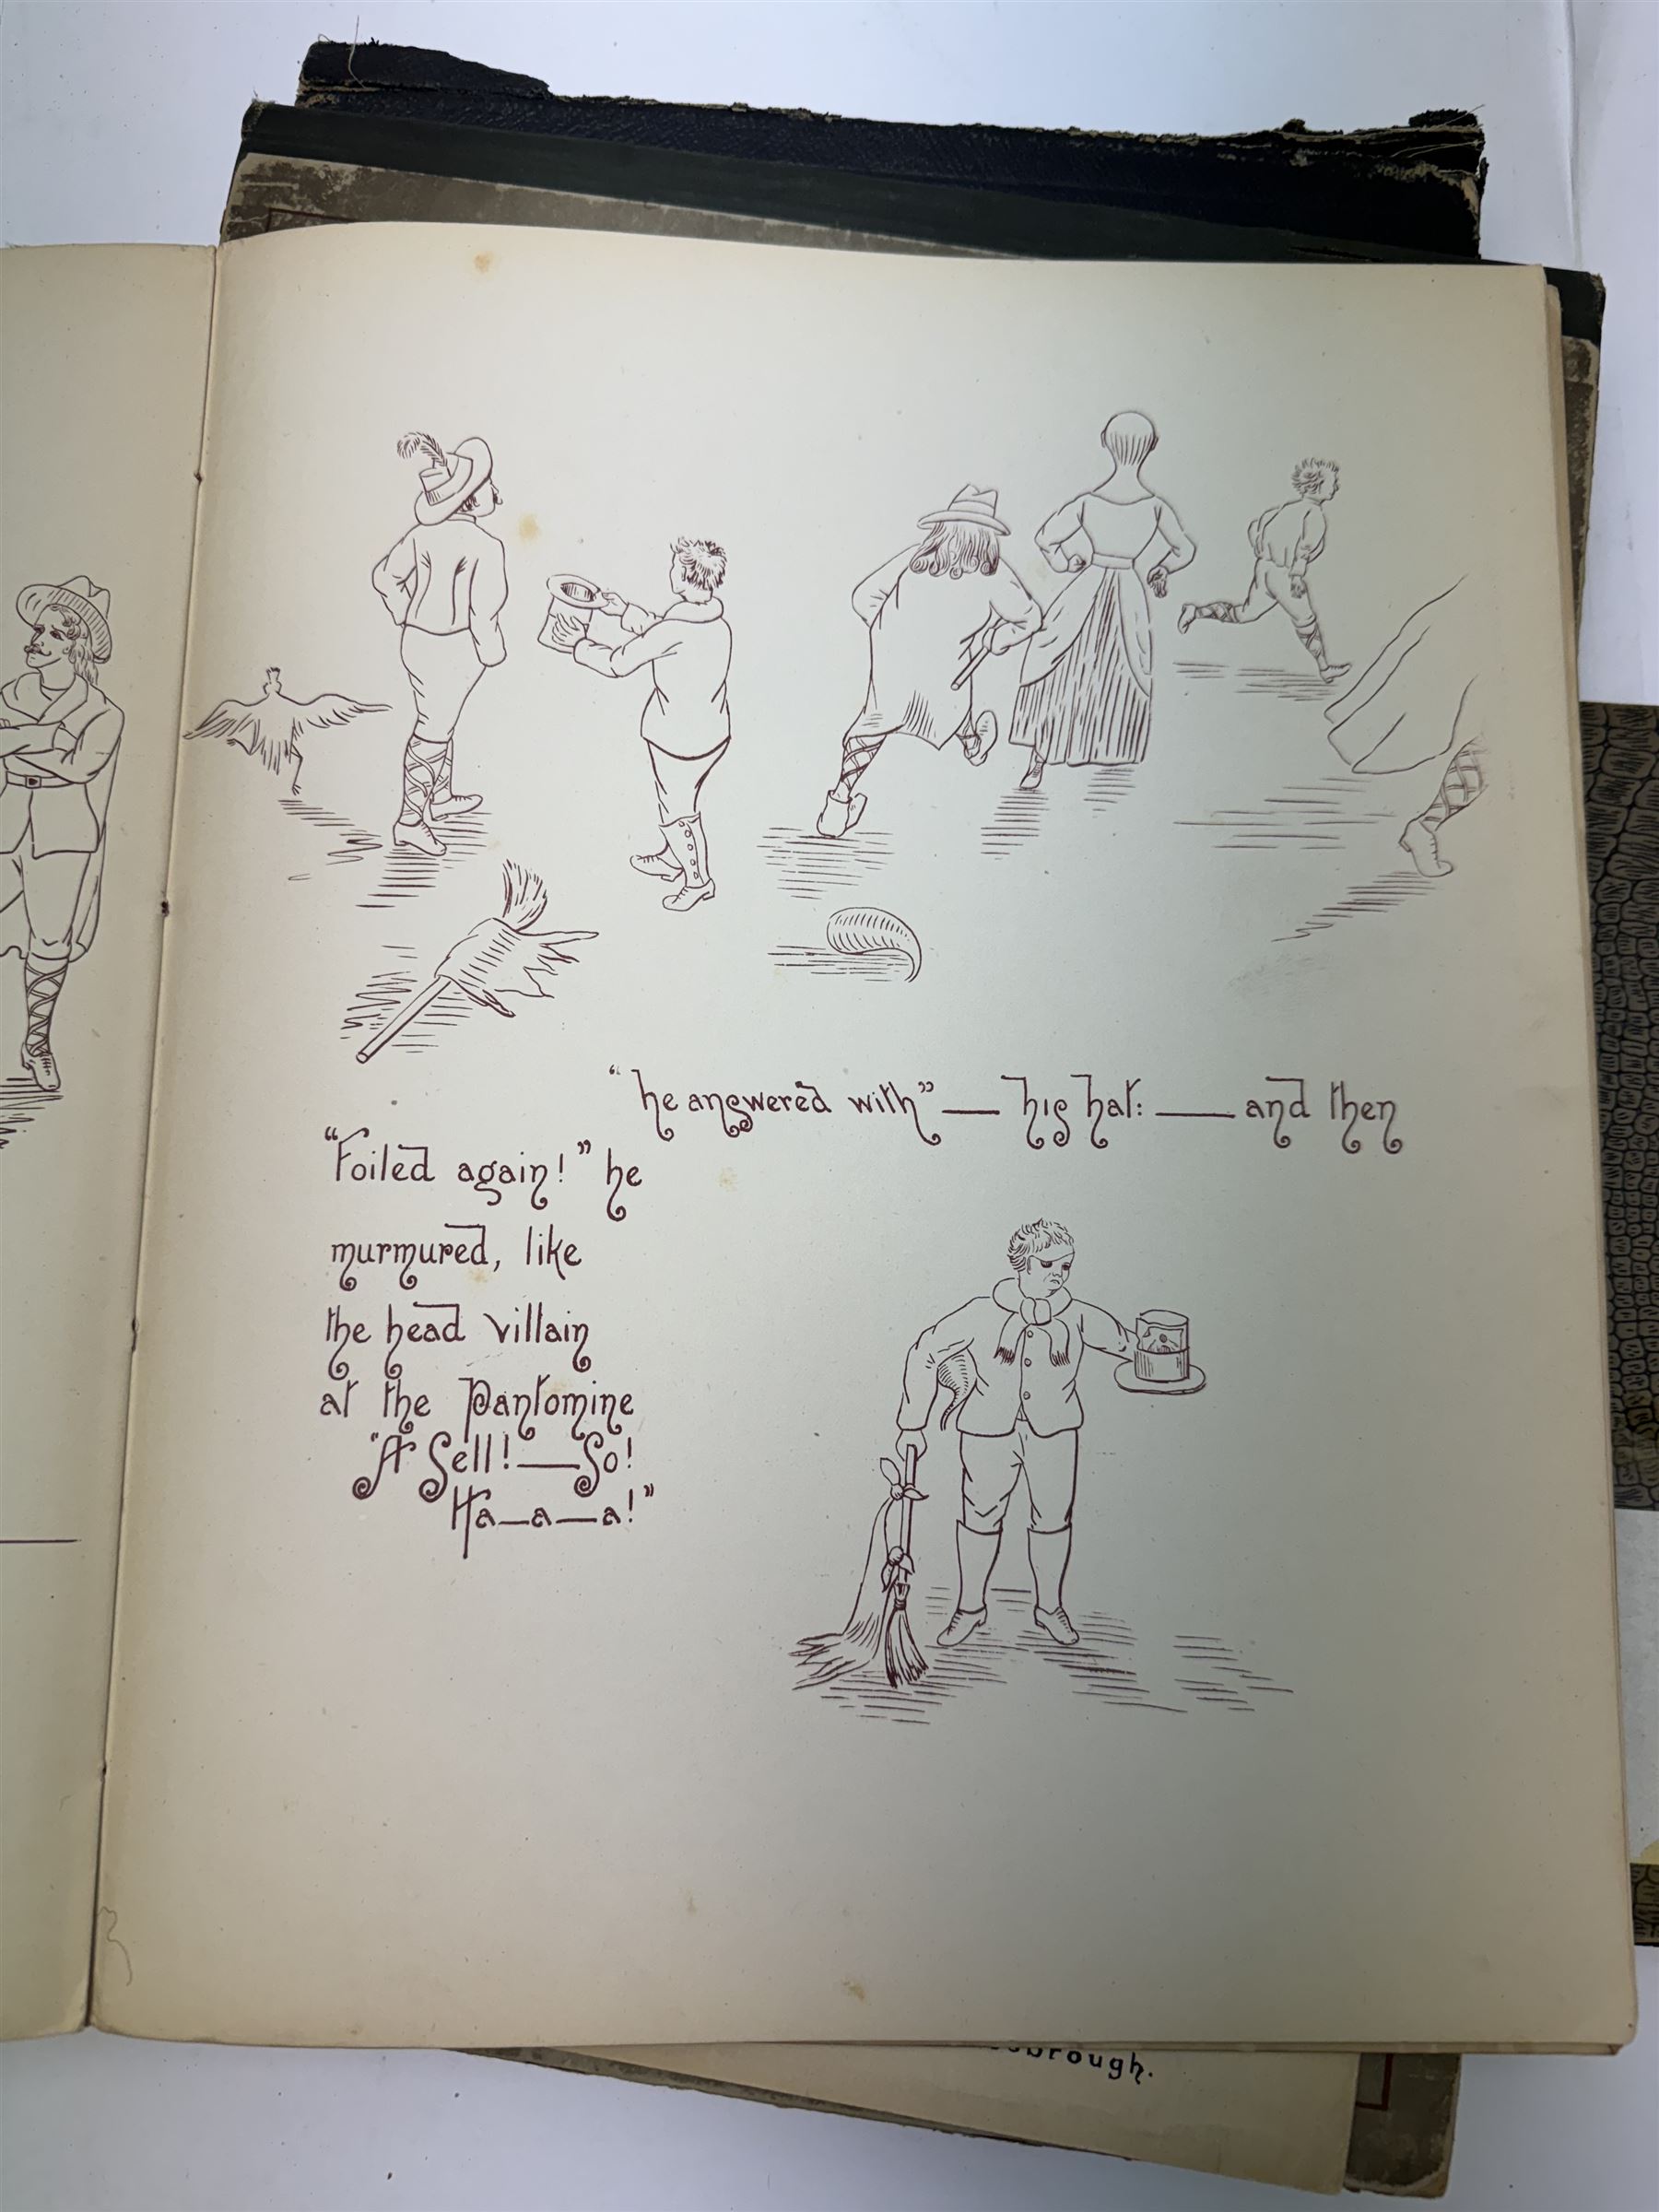 "he answered with" — his hat: — and then
"Foiled again!" he
murmured, like
the head villain
at the Pantomine
"A Sell! — So!
Ha—a—a!"
brough.